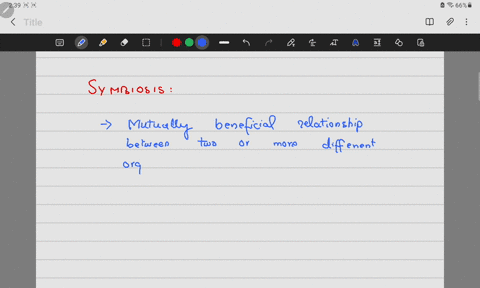 2:39
66%
Title
SYMBIOSIS:
→ Mutually beneficial relationship
between two or more different
org